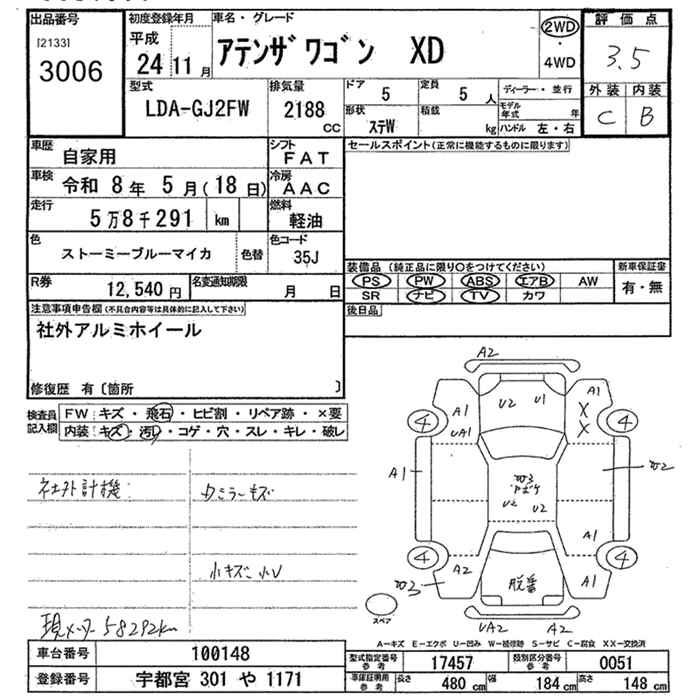 出品番号
[2133]
3006
初度登録年月
平成
24 11 月
車名・グレード
アテンザワゴン XD
2WD
・
4WD
評価点
3.5
外装 内装
C B
型式
LDA-GJ2FW
排気量
2188
CC
ドア
5
定員
5 人
形状
ステW
積載
kg
ディーラー・並行
モデル年式 年
ハンドル 左・右
車歴
自家用
シフト
FAT
車検
令和 8 年 5 月(18 日)
冷房
AAC
走行
5万8千291 km
燃料
軽油
色
ストーミーブルーマイカ
色替
色コード
35J
R券
12,540 円
名変通知期限
月 日
セールスポイント(正常に機能するものに限ります)
装備品(純正品に限り○をつけてください)
PS PW ABS エアB AW
SR ナビ TV カワ
新車保証書
有・無
後日品
注意事項申告欄(不具合内容等は具体的に記入して下さい)
社外アルミホイール
修復歴 有〔箇所 〕
検査員
記入欄
FW キズ・飛石・ヒビ割・リペア跡・×要
内装 キズ・汚れ・コゲ・穴・スレ・キレ・破レ
社外計機
カミラーキズ
小キズ小U
現メーター58292km
A2
A1
U2 U1
A1
X
X
UA1
4 4
A1
W3
U2 U2
W2
A1
4 4
A2
A1
W3
脱着
UA2 A2
スペア
A-キズ E-エクボ U-凹み W-補修跡 S-サビ C-腐食 XX-交換済
車台番号
100148
登録番号
宇都宮 301 や 1171
型式指定番号
参考
17457
類別区分番号
参考
0051
車庫証明用
参考
長さ 480 cm
幅 184 cm
高さ 148 cm